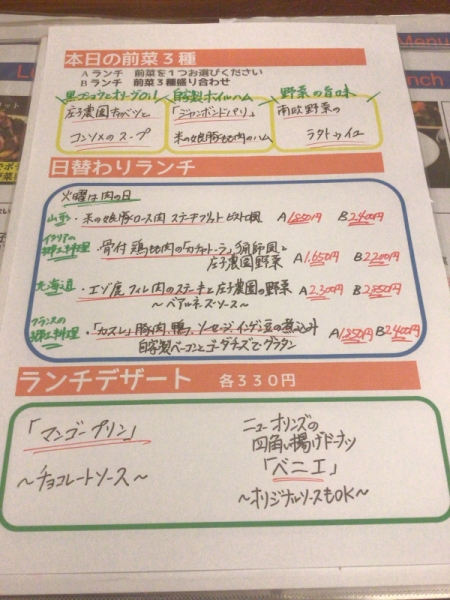 本日の前菜3種
Aランチ 前菜を1つお選びください
Bランチ 前菜3種盛り合わせ
黒コショウとオリーブオイル 自家製ボイルハム 野菜の旨味
庄子農園キャベツと 「ジャンボンドパリ」 南欧野菜の
コンソメのスープ 米の娘豚モモ肉のハム ラタトゥイユ
日替わりランチ
火曜は肉の日
山形・米の娘豚ロース肉 ステークフリット ビストロ風 A1,850円 B2,400円
イタリアの郷土料理・骨付鶏モモ肉の「カチャトーラ」猟師風と
庄子農園野菜 A1,650円 B2,200円
北海道・エゾ鹿フィレ肉のステーキと庄子農園の野菜 A2,300円 B2,850円
〜ベアルネーズソース〜
フランスの郷土料理・「カスレ」豚肉、鴨、ソーセージ、インゲン豆の煮込み A1,850円 B2,400円
自家製ベーコンとゴーダチーズでグラタン
ランチデザート 各330円
「マンゴープリン」
〜チョコレートソース〜
ニューオリンズの
四角い揚げドーナツ
「ベニエ」
〜オリジナルソースもOK〜